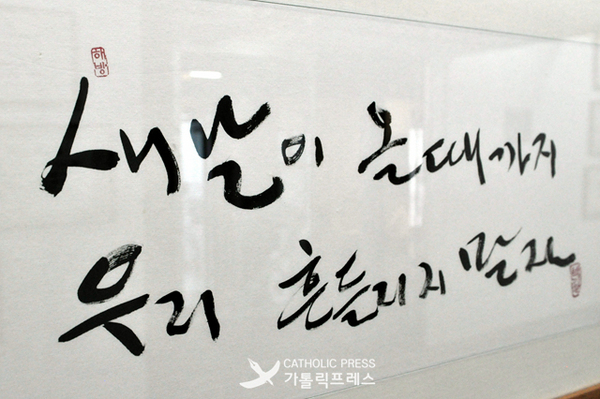 해방
새날이 올때까지
우리 흔들리지 말자
CATHOLIC PRESS
가톨릭프레스